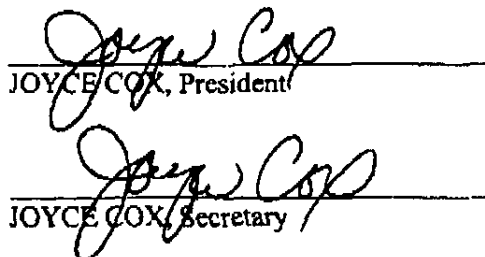 Joyce Cox
JOYCE COX, President
Joyce Cox
JOYCE COX, Secretary